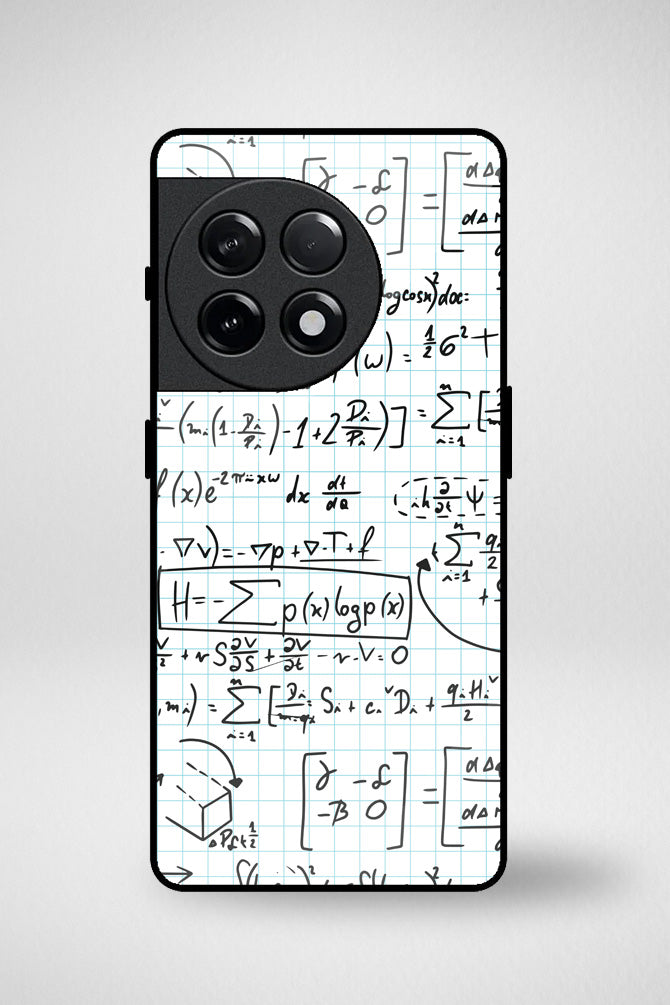 i=1
[ɣ -L 0] = [dΔ dΔ
logcosx)²dx=
(w) = 1/2 6² +
(mᵢ(1-Dᵢ/Pᵢ)-1+2Dᵢ/Pᵢ)] = Σ i=1 n [
f(x)e^-2πixw dx dt/dQ iħ ∂/∂t Ψ =
·∇v)=-∇p+∇·T+f
Σ i=1 n qᵢ/2
H=-Σ p(x)logp(x)
V/2 + rS ∂V/∂S + ∂V/∂t - r·V=0
,mᵢ) = Σ i=1 n [Dᵢ/mᵢqᵢ Sᵢ + cᵢᵛDᵢ + qᵢHᵢᵛ/2
[ɣ -L -β 0] = [dΔ dΔ
ΔPₛt 1/2